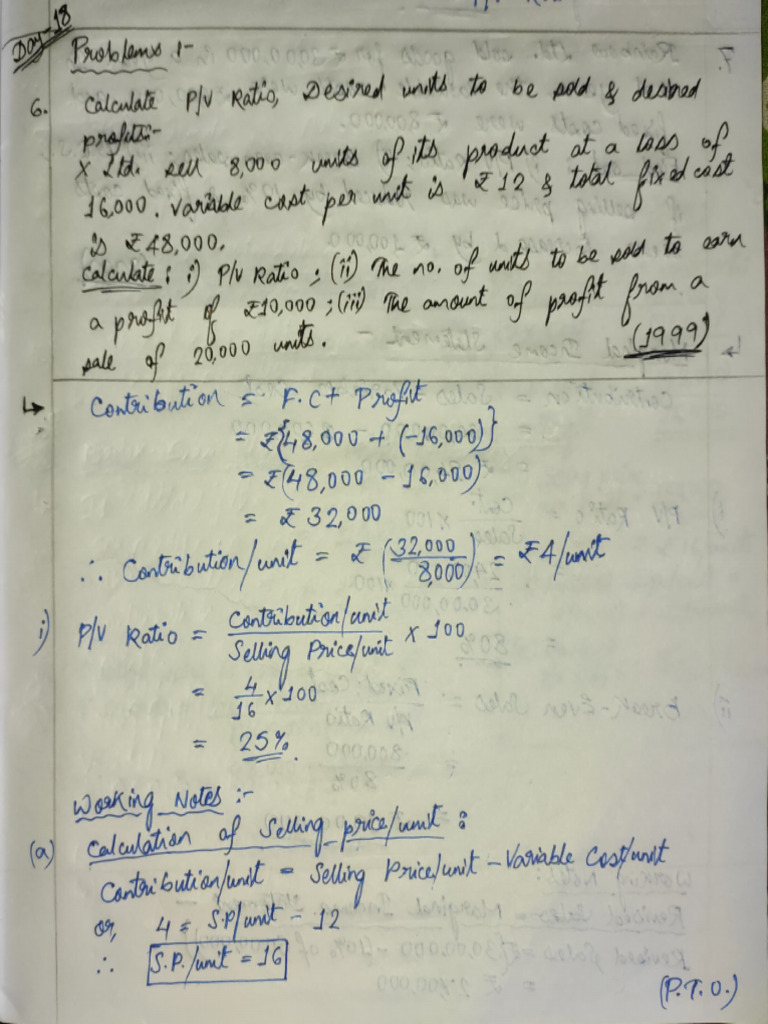 Day-18
Problems :-
6. Calculate P/V Ratio, Desired units to be sold & desired
profits:-
X Ltd. sell 8,000 units of its product at a loss of
16,000. Variable cost per unit is ₹12 & total fixed cost
is ₹48,000.
Calculate: i) P/V Ratio ; (ii) The no. of units to be sold to earn
a profit of ₹10,000 ; (iii) The amount of profit from a
sale of 20,000 units. (1999)
↳ Contribution = F.C + Profit
= ₹{48,000 + (-16,000)}
= ₹(48,000 - 16,000)
= ₹ 32,000
∴ Contribution/unit = ₹ (32,000/8,000) = ₹4/unit
i) P/V Ratio = Contribution/unit / Selling Price/unit × 100
= 4/16 × 100
= 25%.
Working Notes :-
(a) Calculation of Selling price/unit :
Contribution/unit = Selling Price/unit - Variable Cost/unit
or, 4 = S.P/unit - 12
∴ S.P./unit = 16
(P.T.O.)